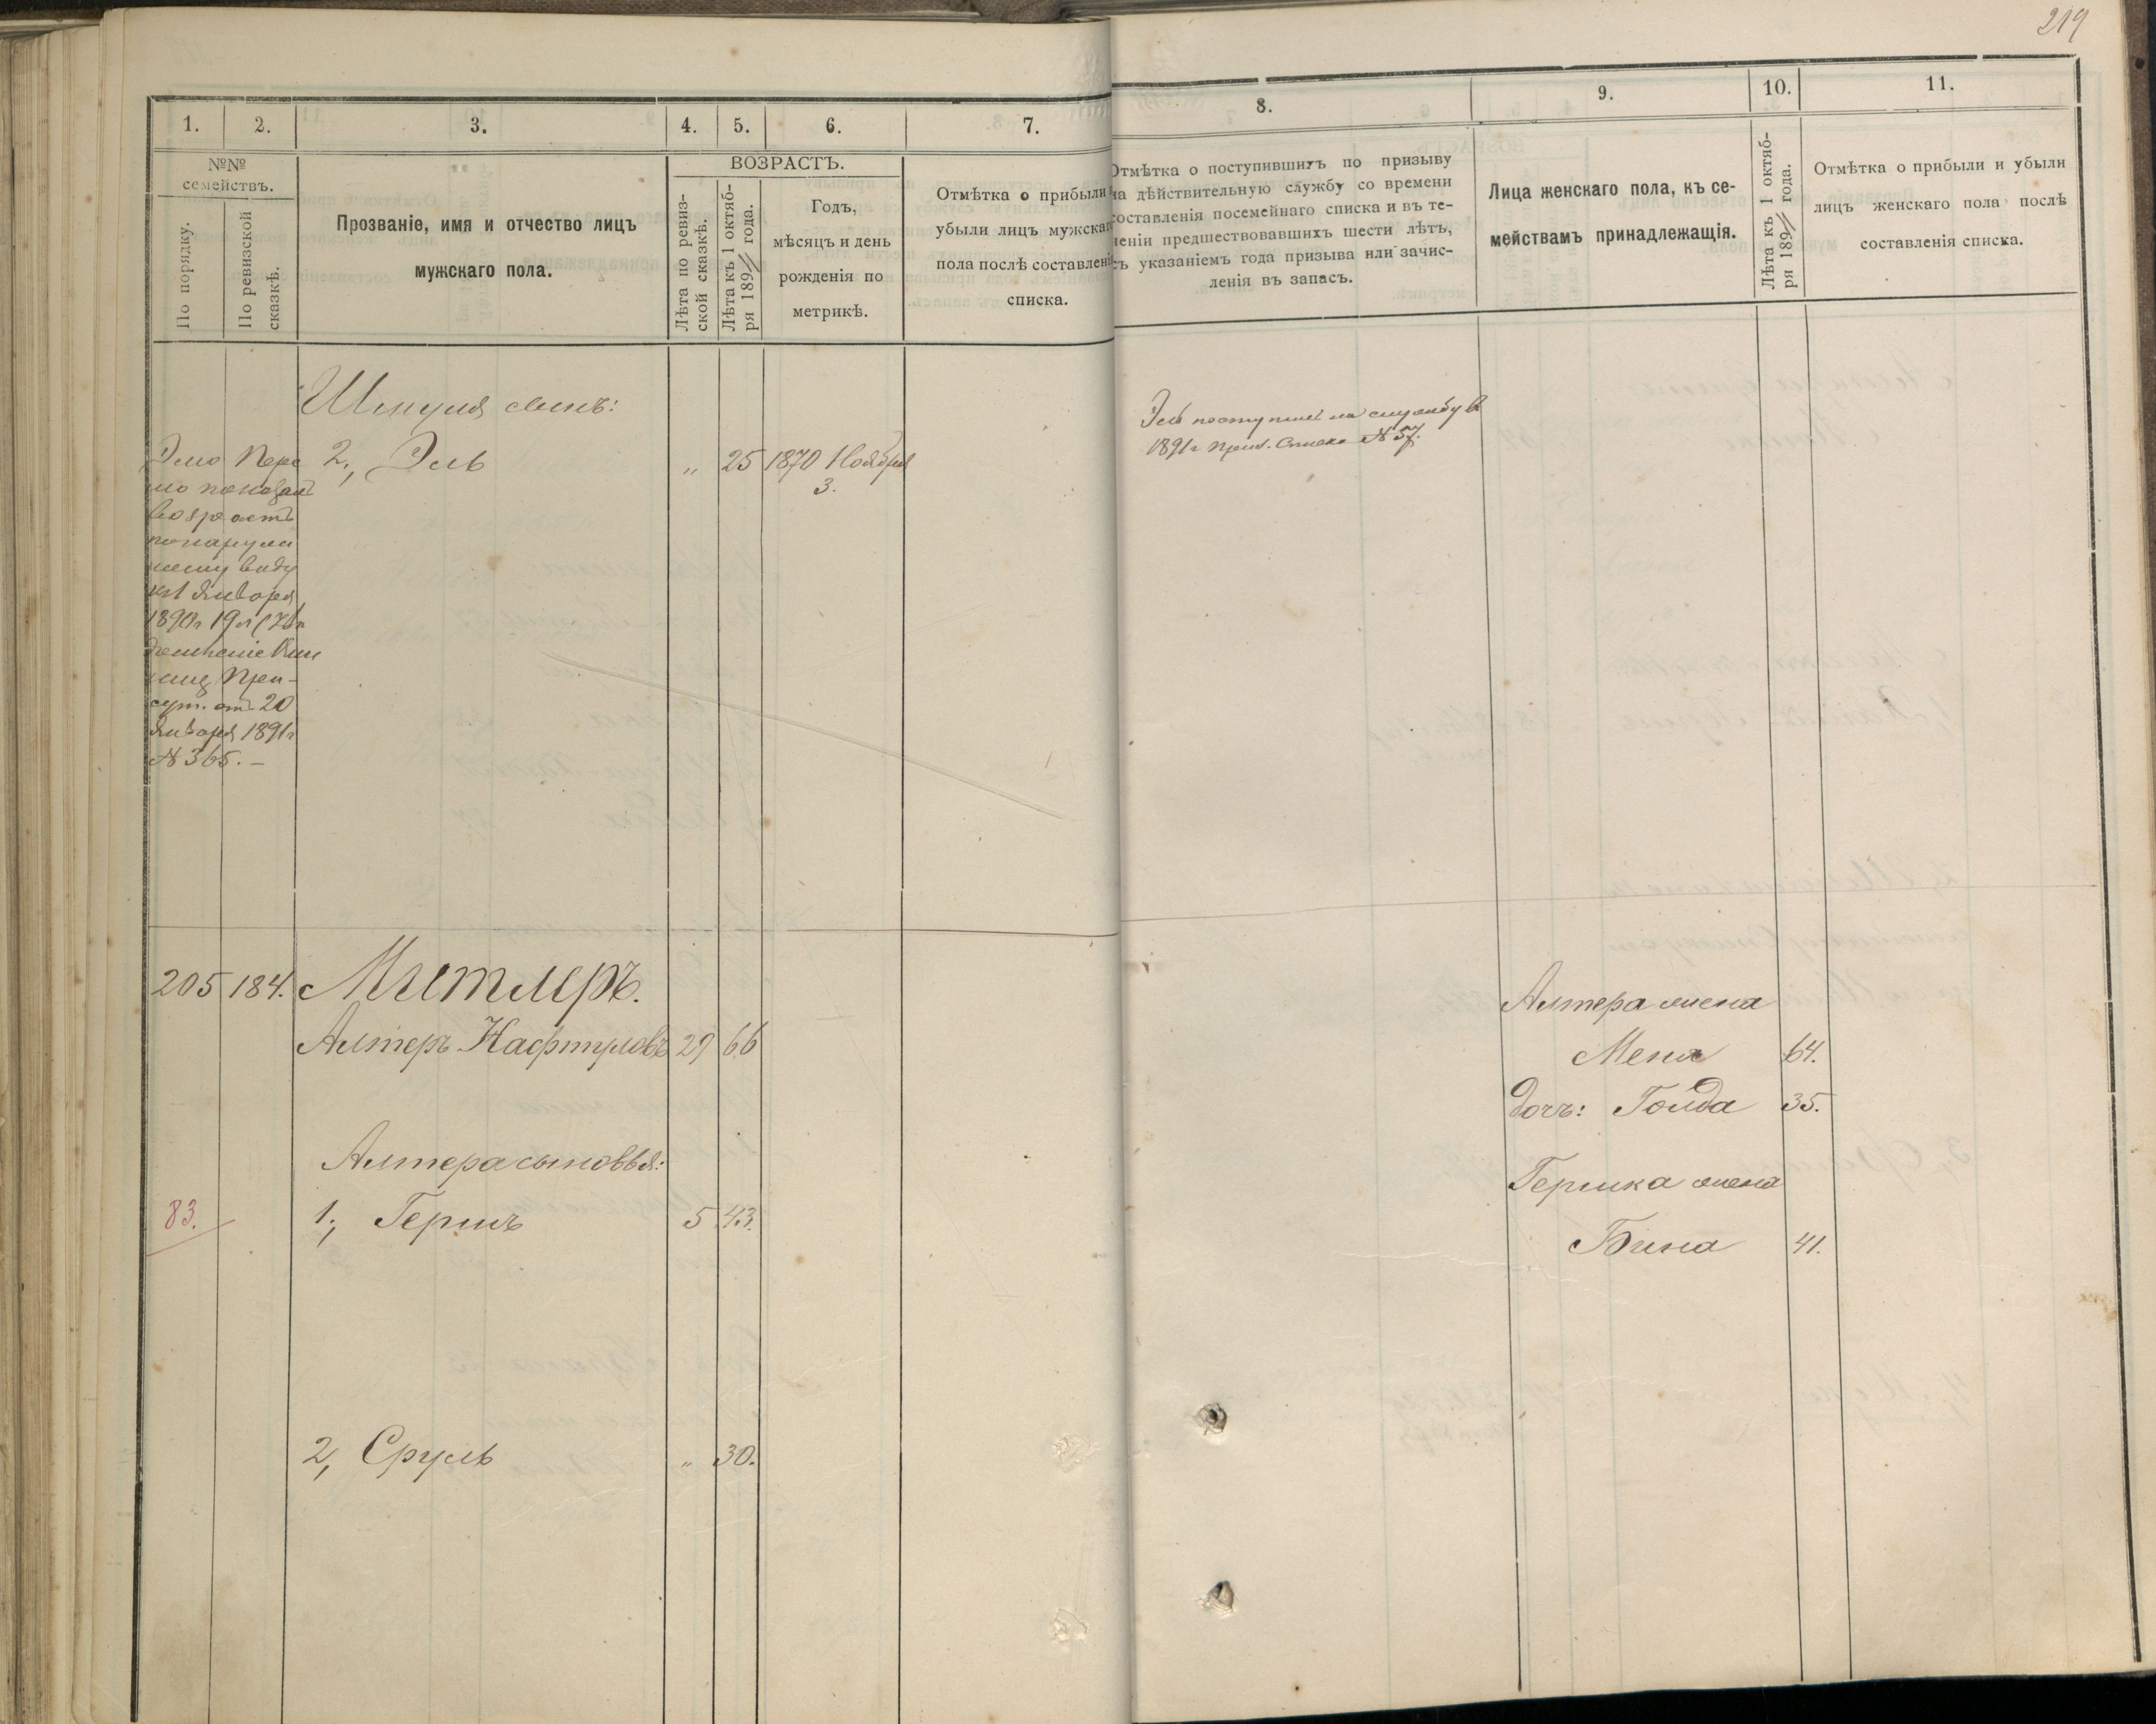 219
1. 2. 3. 4. 5. 6. 7.
№№ семействъ.
По порядку.
По ревизской сказкѣ.
Прозваніе, имя и отчество лицъ
мужскаго пола.
ВОЗРАСТЪ.
Лѣта по ревиз-
ской сказкѣ.
Лѣта къ 1 октяб-
ря 189 года.
Годъ,
мѣсяцъ и день
рожденія по
метрикѣ.
Отмѣтка о прибыли
убыли лицъ мужскаг
пола послѣ составлені
списка.
Шмуля сынъ:
2, Эль " 25 1870 Ноября
3.
показанъ
возрастъ
по наруж
ному виду
к 1 Января
1890г 19 л
Прис-
от 20
Января 1891г
№ 365. –
205 184.
Алтеръ Нафтуловъ 29 66
Алтера сыновья:
83. 1, Гершъ 5 43.
2, Сруль " 30.
8. 9. 10. 11.
Отмѣтка о поступившихъ по призыву
на дѣйствительную службу со времени
составленія посемейнаго списка и въ те-
ченіи предшествовавшихъ шести лѣтъ,
съ указаніемъ года призыва или зачис-
ленія въ запасъ.
Лица женскаго пола, къ се-
мействамъ принадлежащія.
Лѣта къ 1 октяб-
ря 189 года.
Отмѣтка о прибыли и убыли
лицъ женскаго пола послѣ
составленія списка.
Эль поступилъ на службу в
1891г Приз. Списка № 57.
Алтера жена
Меня 64.
дочь: Голда 35.
Гершка жена
Бина 41.